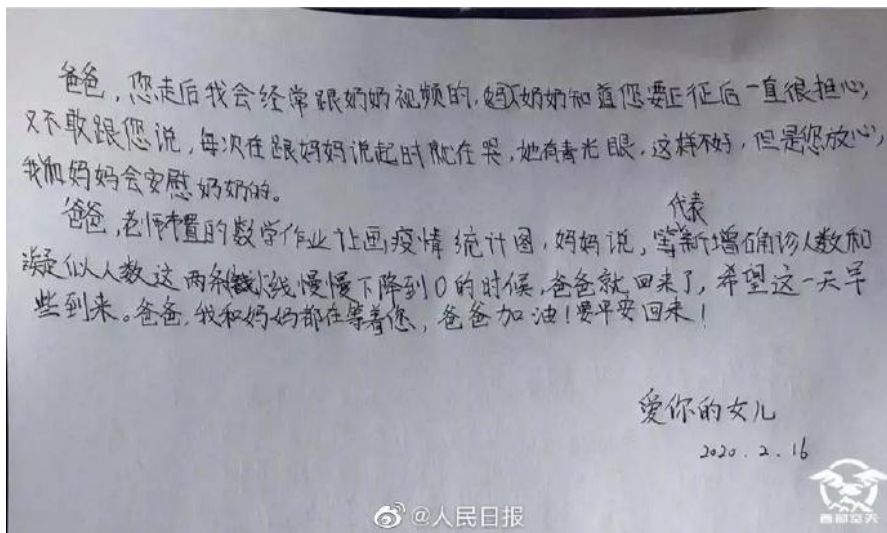 爸爸，您走后我会经常跟奶奶视频的，奶奶知道您要出征后一直很担心，
又不敢跟您说，每次在跟妈妈说起时就在哭，她有青光眼，这样不好，但是您放心，
我和妈妈会安慰奶奶的。
代表
爸爸，老师布置的数学作业让画疫情统计图，妈妈说，等新增确诊人数和
凝似人数这两条线慢慢下降到0的时候，爸爸就回来了，希望这一天早
些到来。爸爸，我和妈妈都在等着您，爸爸加油！要平安回来！
爱你的女儿
2020.2.16
@人民日报